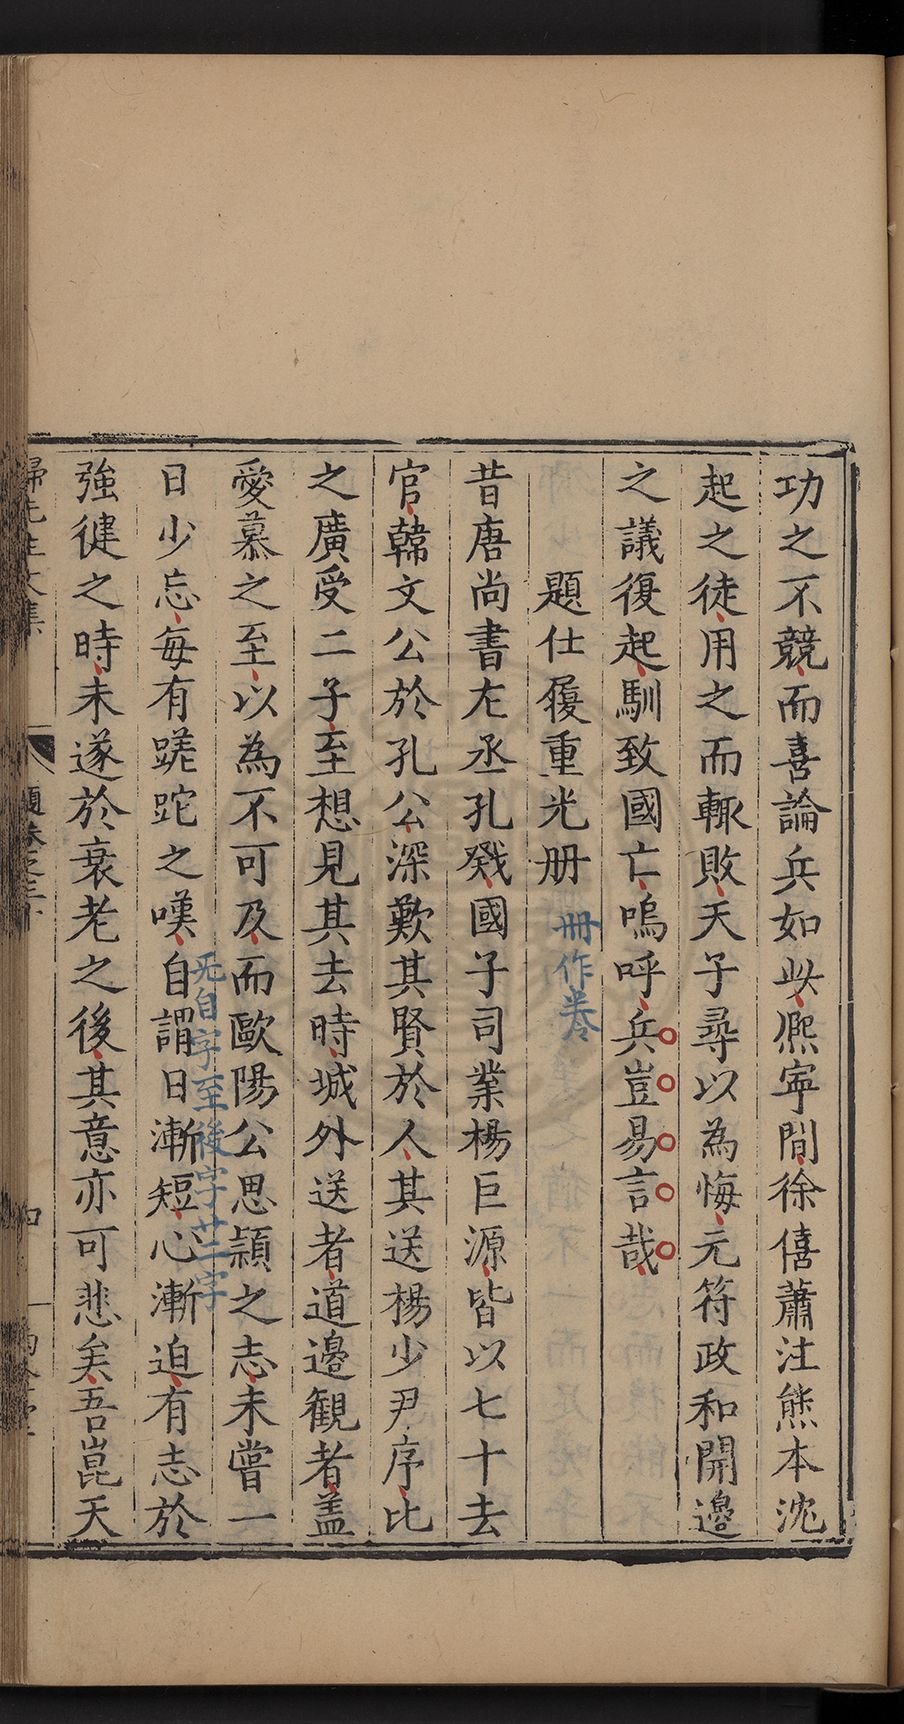 功之不競而喜論兵如此熈寧間徐僖蕭注熊本沈
起之徒用之而輒敗天子尋以為悔元符政和開邊
之議復起馴致國亡嗚呼兵豈易言哉
題仕履重光册
冊作卷
昔唐尚書左丞孔戣國子司業楊巨源皆以七十去
官韓文公於孔公深歎其賢於人其送楊少尹序比
之廣受二子至想見其去時城外送者道邊觀者盖
愛慕之至以為不可及而歐陽公思潁之志未嘗一
日少忘每有蹉跎之嘆自謂日漸短心漸迫有志於
无自字至後字廿二字
強健之時未遂於衰老之後其意亦可悲矣吾崑天
歸先生文集
題卷之三下
四